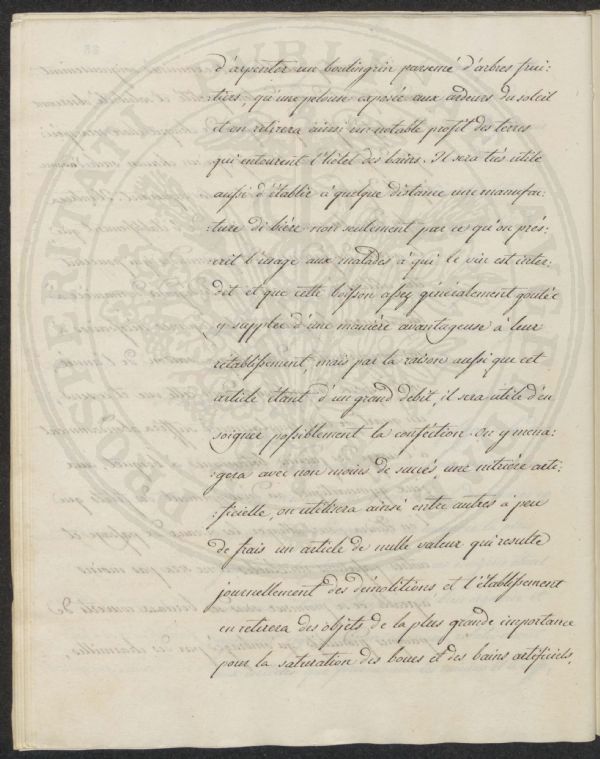 d'arpenter un boulingrin parsemé d'arbres frui-
-tiers, qu'une pelouse exposée aux ardeurs du soleil
et on retirera ainsi un notable profit des terres
qui entourent l'hôtel des bains. Il sera très utile
aussi d'établir à quelque distance une manufac-
-ture de bière non seulement par ce qu'on prés-
-crit l'usage aux malades à qui le vin est inter-
dit et que cette boisson assez généralement goutée
y supplée d'une manière avantageuse à leur
rétablissement, mais par la raison aussi que cet
article étant d'un grand débit, il sera utile d'en
soigner possiblement la confection. On y mena-
-gera avec non moins de succès, une nitrière arti-
-ficielle, on utilisera ainsi entre autres à peu
de frais un article de nulle valeur qui resulte
journellement des démolitions et l'établissement
en retirera des objets de la plus grande importance
pour la saturation des boues et des bains artificiels,
POSTERITATI